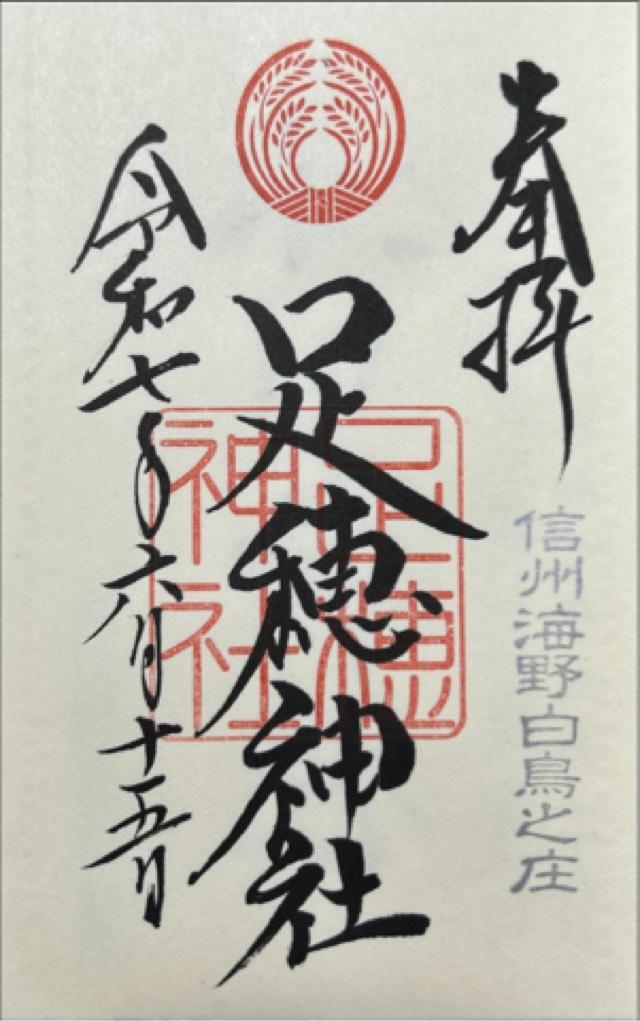 奉拝
信州海野白鳥之庄
足穂神社
足穂
神社
令和七年六月十五日